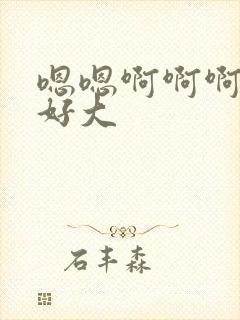 嗯嗯啊啊啊
好大
石丰森